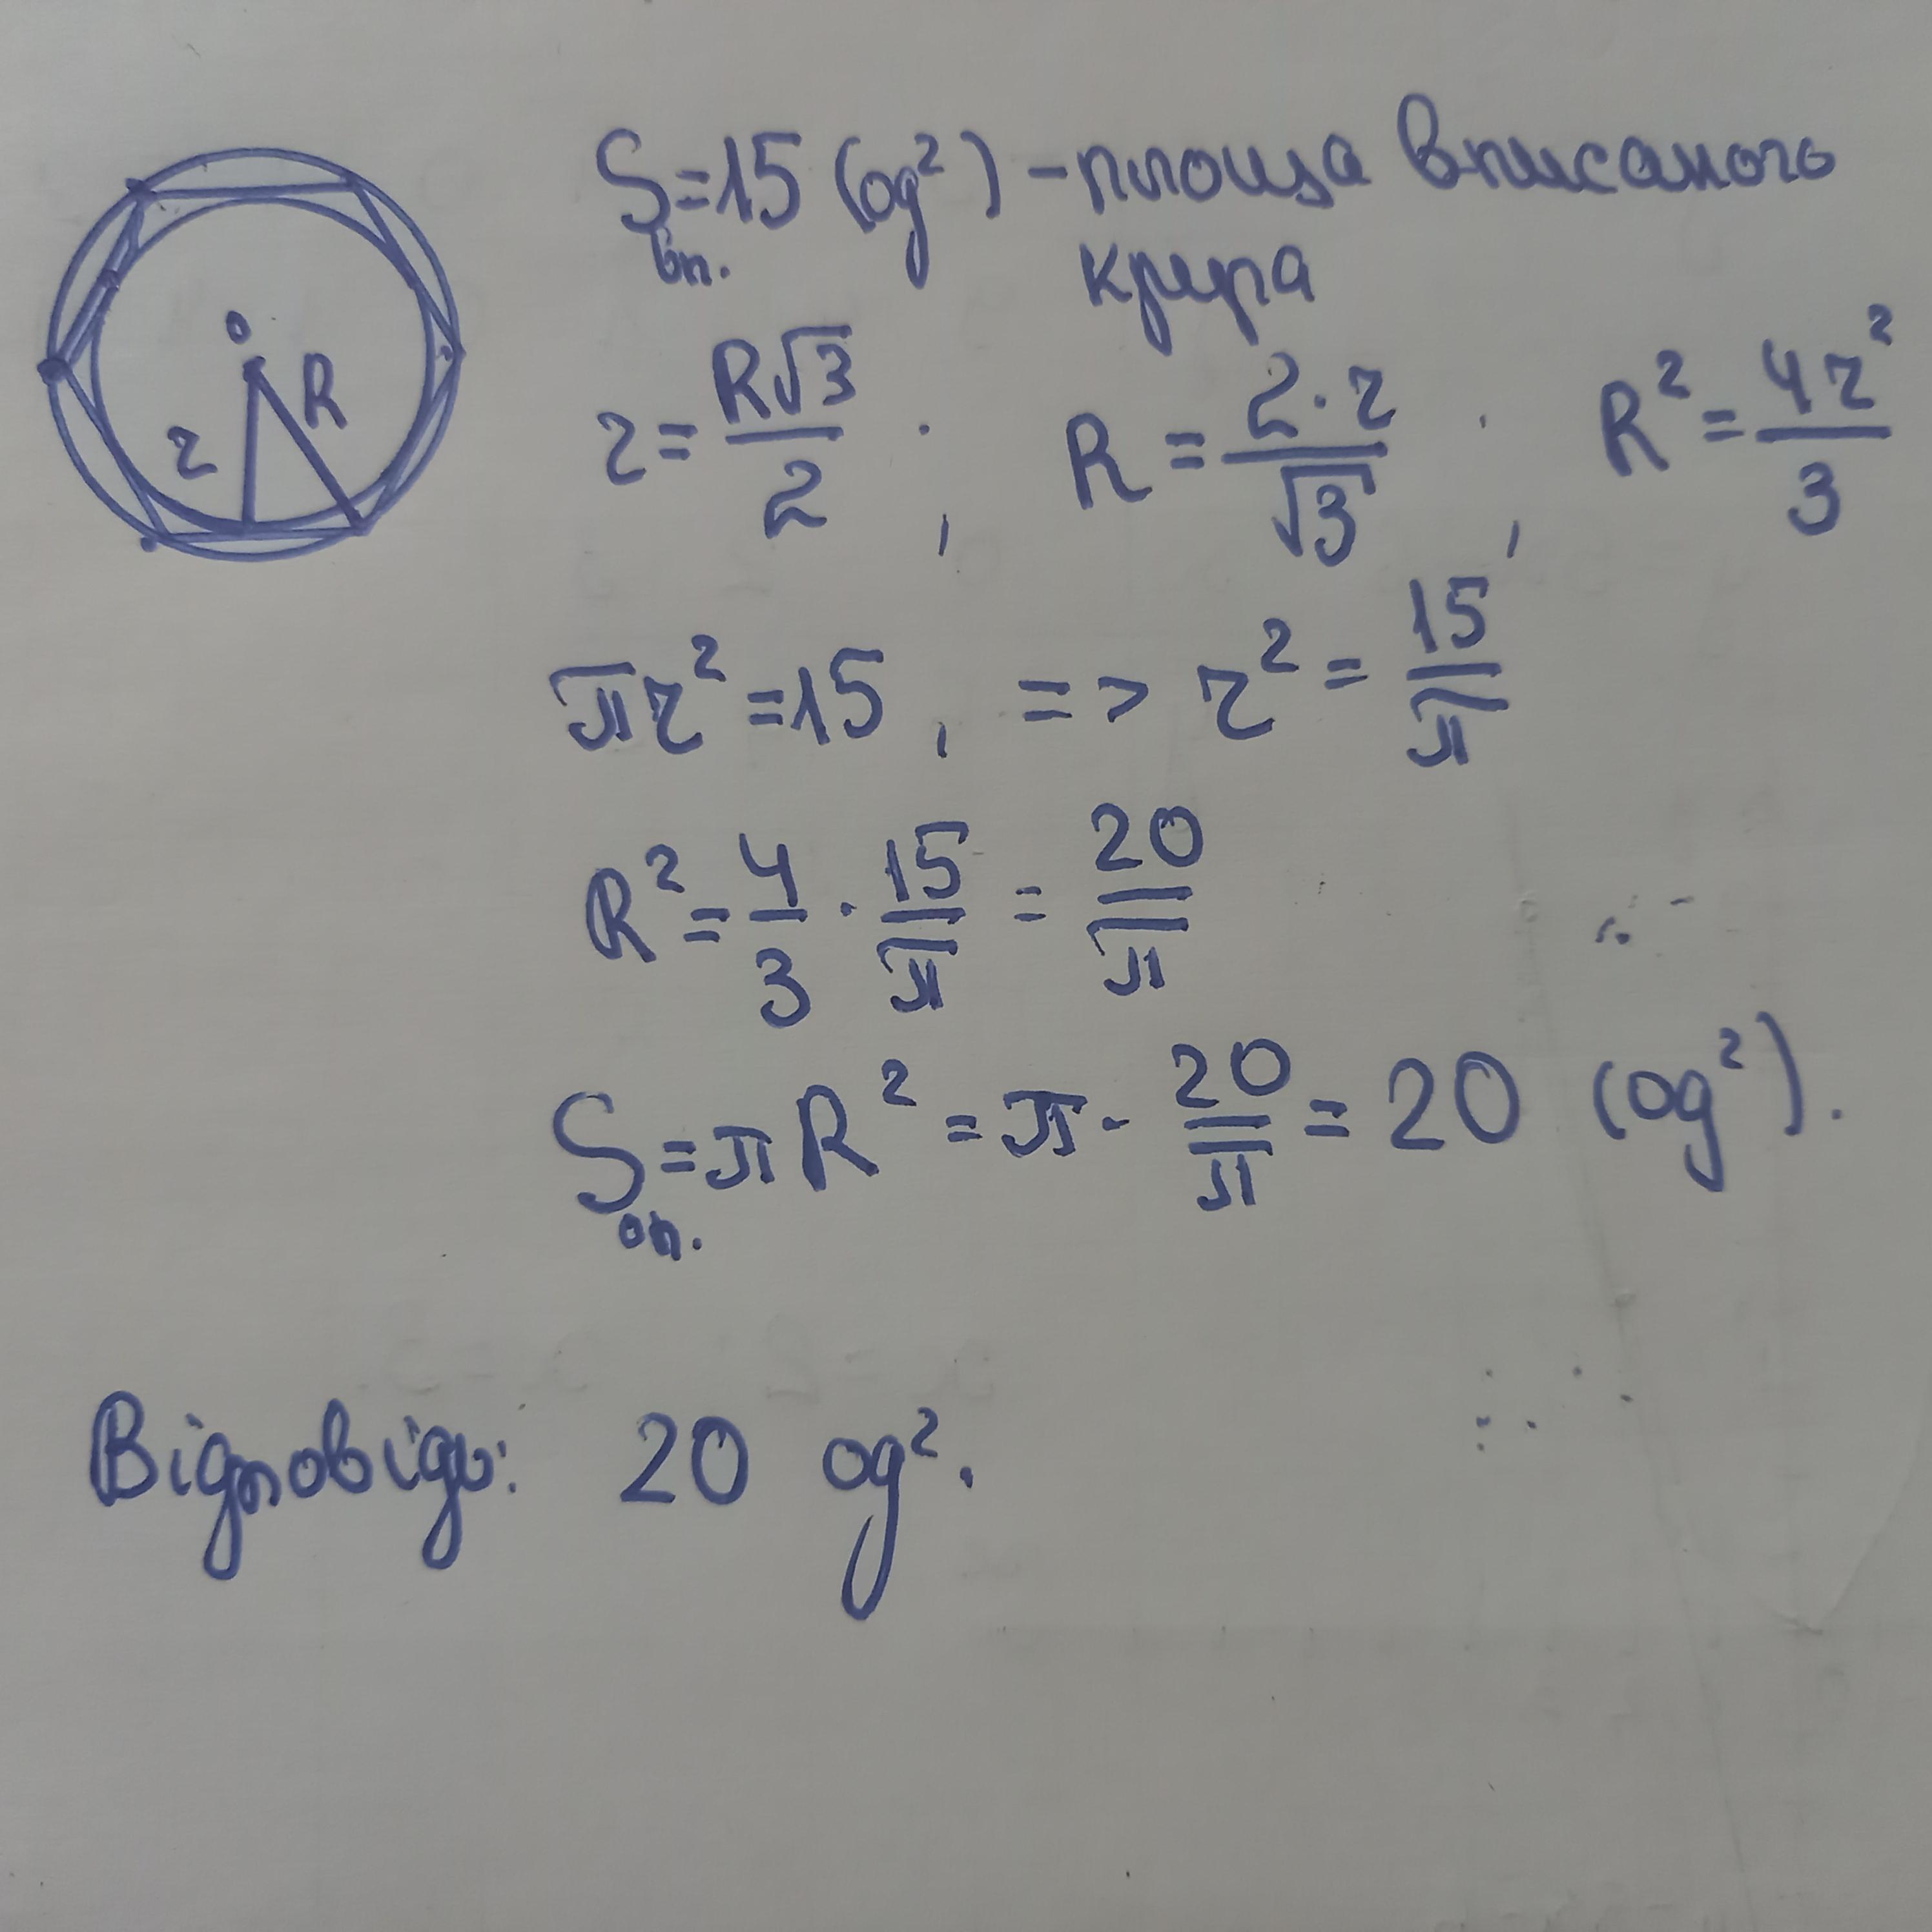 S вп. = 15 (од²) – площа вписаного
круга
O
R
r
r = R√3/2 ; R = 2·r/√3 ; R² = 4r²/3
πr² = 15, => r² = 15/π
R² = 4/3 · 15/π = 20/π
S оп. = πR² = π · 20/π = 20 (од²).
Відповідь: 20 од².